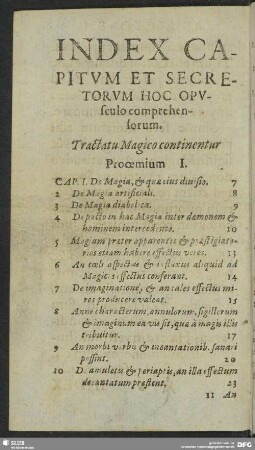 INDEX CA-
PITVM ET SECRE-
TORVM HOC OPV-
sculo comprehen-
sorum.
Tractatu Magico continentur
Procemium I.
CAP. I. De Magia, & quæ eius diuisio. 7
2 De Magia artificiali. 8
3 De Magia diabolica. 9
4 De pacto in hac Magia inter dæmonem &
hominem intercedente. 10
5 Magiam præter apparentes & præstigiato-
rios etiam habere effectus veros. 13
6 An cæli aspectus & influxus aliquid ad
Magicos effectus conferant. 14
7 De imaginatione, & an tales effectus mi-
ros producere valeat. 15
8 An ne characterum, annulorum, sigillorum
& imaginum ea vis sit, quæ à magis illis
tribuitur. 17
9 An morbi verbis & incantationib. sanari
possint. 20
10 De amuletis & periaptis, an illa effectum
decantatum præstent. 23
11 An